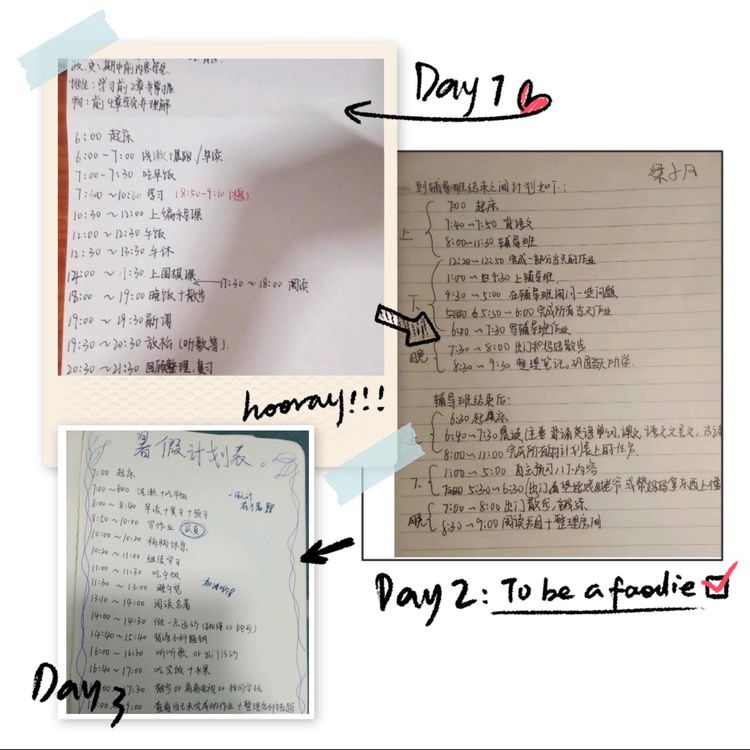 Day 1
政、史：期中前内容背完
地生：学习前2章并掌握
物：前4章读并理解
6:00 起床
6:00-7:00 洗漱+晨跑/早读
7:00-7:30 吃早饭
7:30~10:30 学习 (8:50-9:10休息)
10:30~12:00 上编程课
12:00~12:30 午饭
12:30~13:30 午休
上围棋课 17:30~18:00 阅读
18:00~19:00 晚饭+散步
19:00~19:30 新闻
19:30~20:30 放松(听歌等)
20:30~21:30 回顾整理,复习
hooray!!!
到辅导班结束之间计划如下:
上
7:00 起床
7:40~7:50 背语文
8:00~11:30 辅导班
下
12:20~12:50 完成一部分当天的作业
1:00~4:30 上辅导班.
4:30~5:00 在辅导班阅问一些问题
5:30~6:00 完成所有当天作业
晚
6:00~7:30 写辅导班作业
7:30~8:00 出门和妈妈散步
8:30~9:30 整理笔记,巩固当天所学.
辅导班结束后:
上
6:30 起床
6:40~7:30 晨读(注意背诵英语单词,课文,语文文言文,古诗
8:00~11:00 完成所有的计划表上的任务
下
1:00~5:00 自主预习八下内容
5:30~6:30
晚
7:00~8:00 出门散步,锻炼
8:30~9:00 阅读书目+整理房间
Day 2: To be a foodie
暑假计划表。
7:00 起床
7:00~8:00 洗漱+吃早饭
8:00~8:40 早读+复习+预习
8:50~10:00 写作业 认真
10:00~10:20 稍稍休息
10:20~11:00 继续学习
11:00~11:30 吃午饭
11:30~13:00 睡午觉
13:10~14:00 阅读名著
14:00~14:30 做一点运动(跳绳 or 跑步)
14:40~15:40 背诵小科题纲
16:00~16:30 听听歌 or 出门活动
16:40~17:00 吃完饭+水果
17:30 散步 or 看看电视 or 找同学玩
查看自己未完成的作业+整理各科错题
Day 3